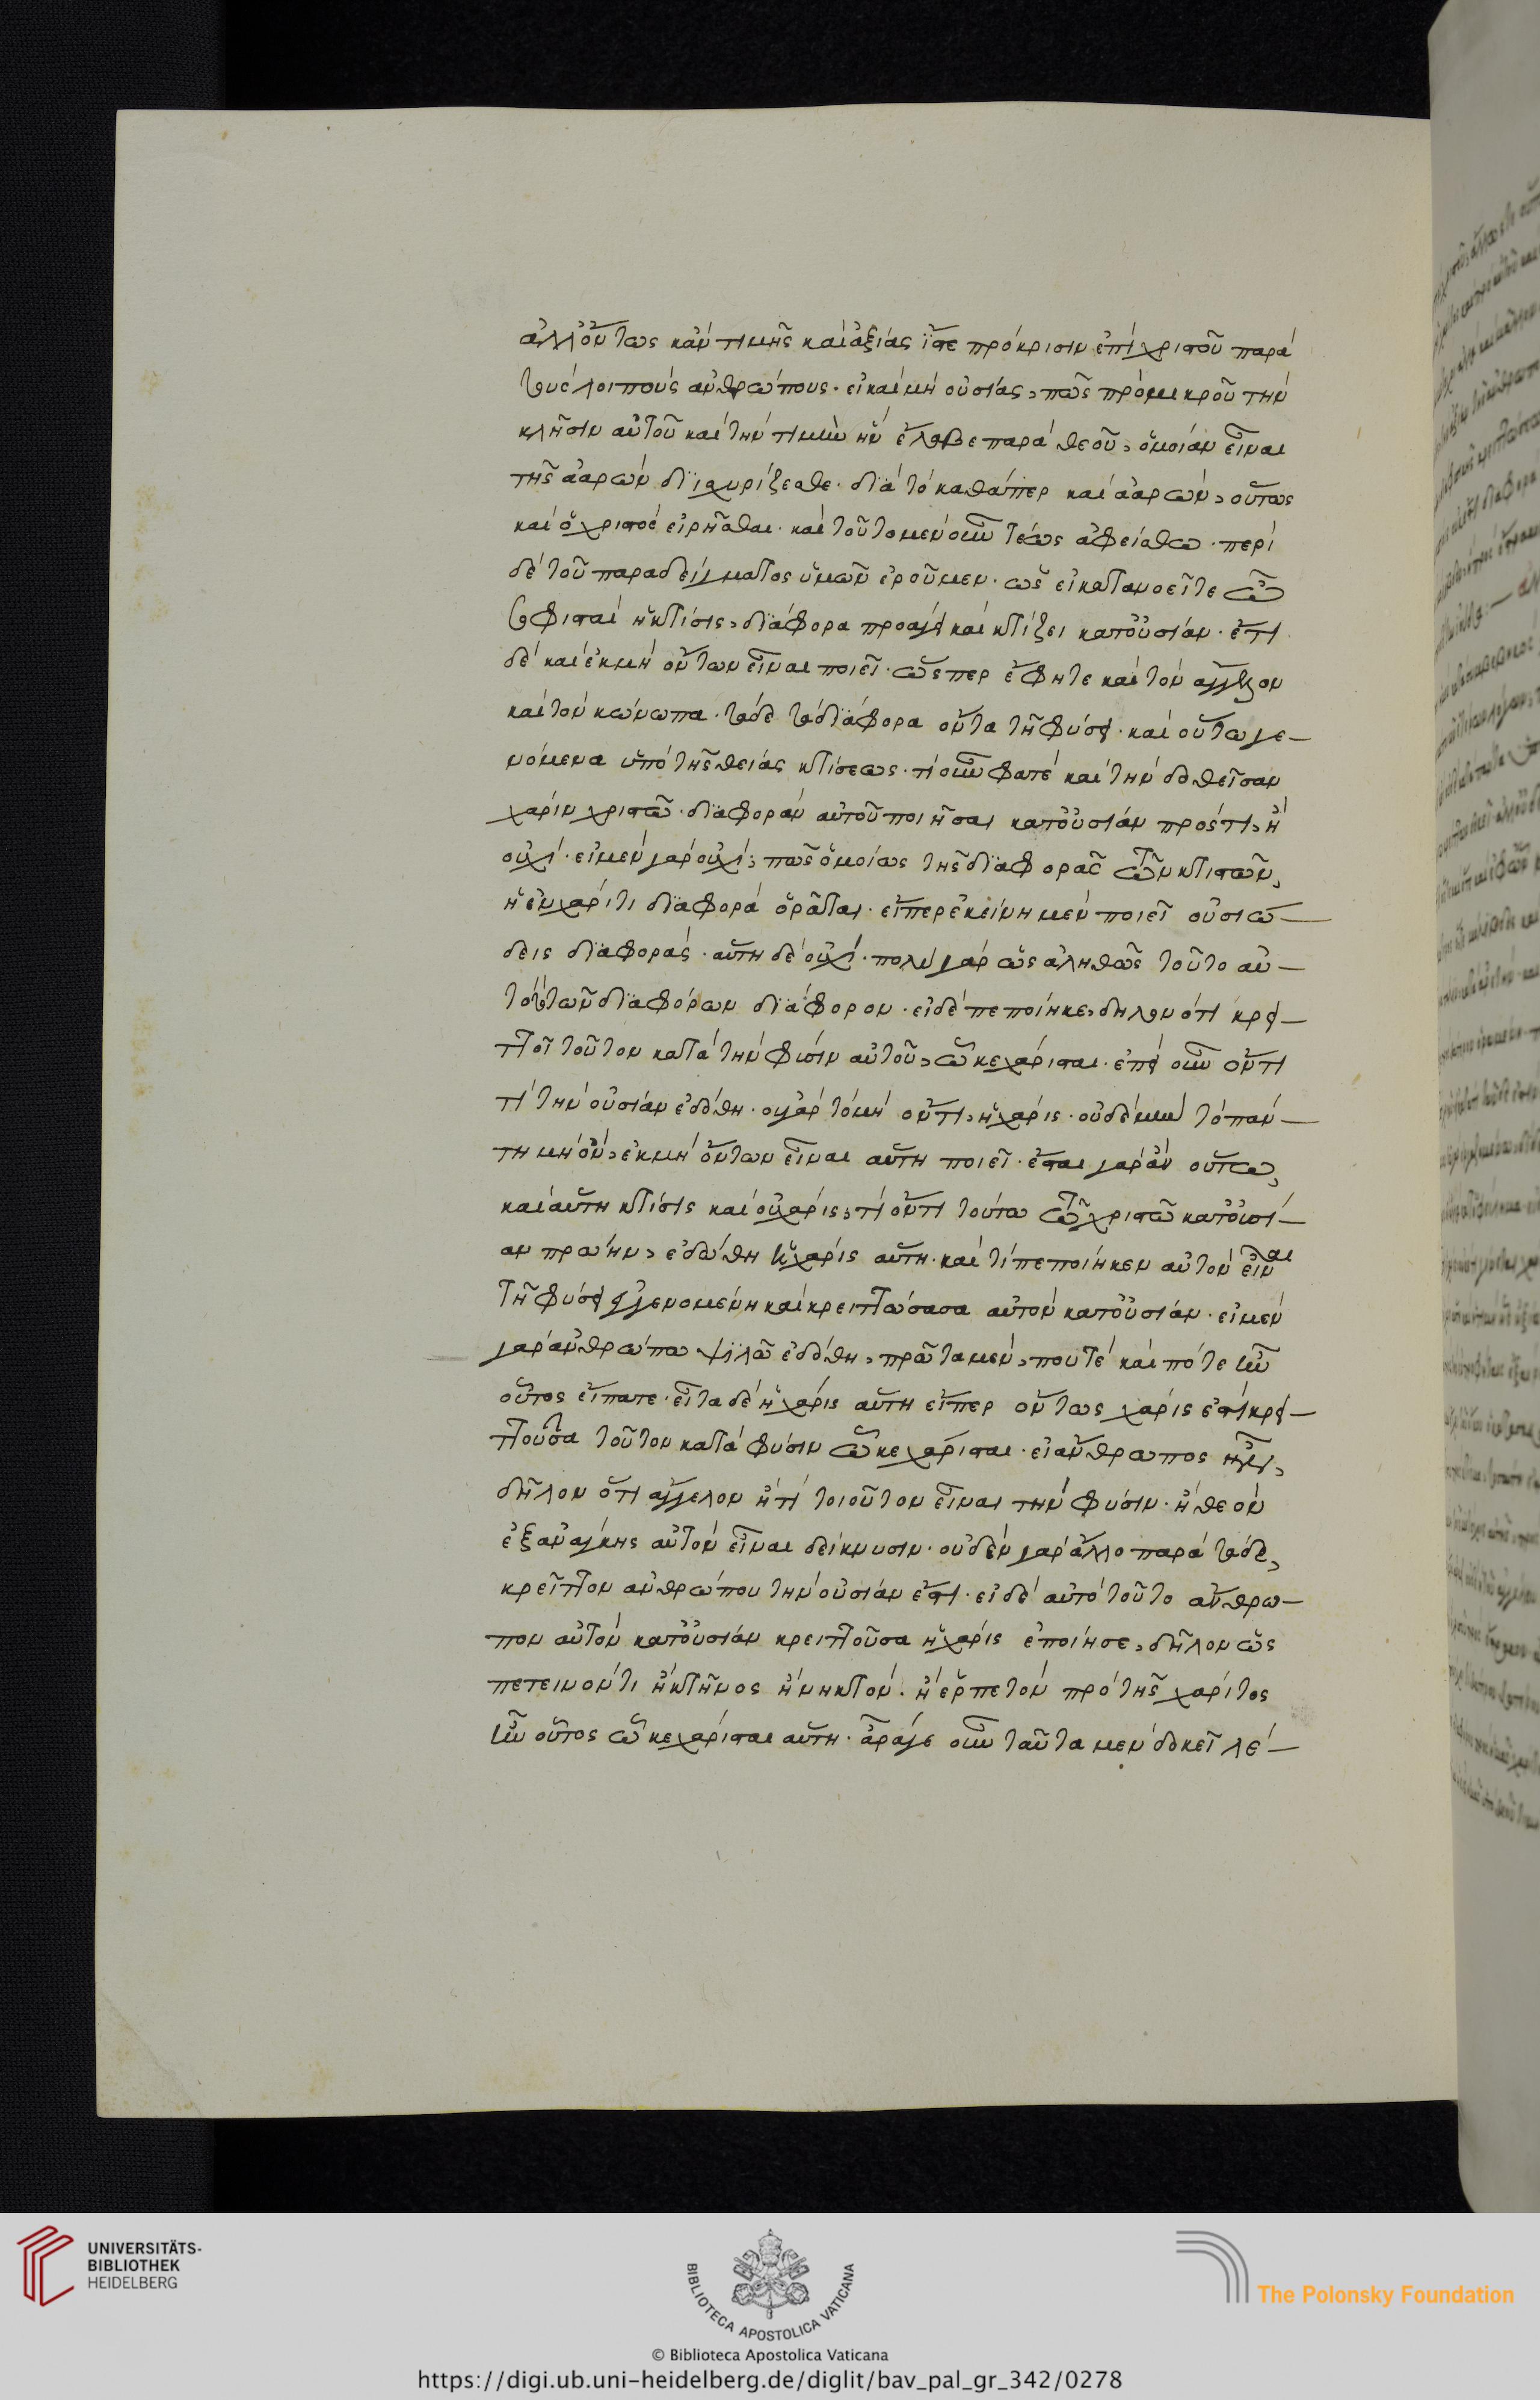 ἀλλ' ὄντως κἂν τιμῆς καὶ ἀξίας ἴστε πρόκρισιν ἐπὶ χριστοῦ παρὰ
τοὺς λοιποὺς ἀνθρώπους. εἰ καὶ μὴ οὐσίας, πῶς πρὸ μικροῦ τὴν
κλῆσιν αὐτοῦ καὶ τὴν τιμὴν ἣν ἔλαβε παρὰ θεοῦ, ὁμοίαν εἶναι
τῆς ἀαρὼν διισχυρίζεσθε. διὰ τὸ καθάπερ καὶ ἀαρὼν, οὕτως
καὶ ὁ χριστὸς εἰρῆσθαι. καὶ τοῦτο μὲν οὖν τέως ἀφείσθω. περὶ
δὲ τοῦ παραδείγματος ὑμῶν ἐροῦμεν. ὡς εἰ κατανοεῖτε ὦ
σοφισταὶ ἡ κτίσις, διάφορα προάγει καὶ κτίζει κατ' οὐσίαν. ἔτι
δὲ καὶ ἐκ μὴ ὄντων εἶναι ποιεῖ. ὥσπερ ἔφητε καὶ τὸν ἄγγελον
καὶ τὸν κώνωπα. τάδε τὰ διάφορα ὄντα τῇ φύσει. καὶ οὕτω γε–
νόμενα ὑπὸ τῆς θείας κτίσεως. τί οὖν φατὲ καὶ τὴν δοθεῖσαν
χάριν χριστῷ. διαφορὰν αὐτοῦ ποιῆσαι κατ' οὐσίαν πρός τι, ἢ
οὐχί. εἰ μὲν γὰρ οὐχί, πῶς ὁμοίως τῆς διαφορᾶς τῶν κτιστῶν,
ἡ ἐν χάριτι διαφορὰ ὁρᾶται. εἴπερ ἐκείνη μὲν ποιεῖ οὐσιώ–
δεις διαφοράς. αὕτη δὲ οὐχί. πολὺ γὰρ ὡς ἀληθῶς τοῦτο αὐ–
τὸ τῶν διαφόρων διάφορον. εἰ δὲ πεποίηκε, δηλονότι κρεί–
ττοῖ τοῦτον κατὰ τὴν φύσιν αὐτοῦ, ᾧ κεχάρισται. ἐπεὶ οὖν ὄντι
τί τὴν οὐσίαν ἐδόθη. οὐ γὰρ τῷ μὴ ὄντι, ἡ χάρις. οὐδὲ μὴν τὸ πάν–
τη μὴ ὂν, ἐκ μὴ ὄντων εἶναι αὕτη ποιεῖ. ἔσται γὰρ ἂν οὕτω,
καὶ αὕτη κτίσις καὶ οὐ χάρις, τί ὄντι τούτω τῷ χριστῷ κατ' οὐσί–
αν πρώην, ἐδόθη ἡ χάρις αὕτη. καὶ τί πεποίηκεν αὐτὸν εἶναι
τῇ φύσει γενομένη καὶ κρειττώσασα αὐτὸν κατ' οὐσίαν. εἰ μὲν
γὰρ ἀνθρώπω ψιλῷ ἐδόθη, πρῶτα μὲν, ποῦ τὲ καὶ πότε ἦν
οὗτος εἴπατε. εἶτα δὲ ἡ χάρις αὕτη εἴπερ ὄντως χάρις ἐστὶ κρεί–
ττοῦσα τοῦτον κατὰ φύσιν ᾧ κεχάρισται. εἰ ἄνθρωπος ἦν,
δῆλον ὅτι ἄγγελον ἤ τι τοιοῦτον εἶναι τὴν φύσιν. ἢ θεὸν
ἐξ ἀνάγκης αὐτὸν εἶναι δείκνυσιν. οὐδὲν γὰρ ἄλλο παρὰ τάδε,
κρεῖττον ἀνθρώπου τὴν οὐσίαν ἐστί. εἰ δὲ αὐτὸ τοῦτο ἄνθρω–
πον αὐτὸν κατ' οὐσίαν κρειττοῦσα ἡ χάρις ἐποίησε, δῆλον ὡς
πετεινόν τι ἢ κτῆνος ἢ νηκτόν. ἢ ἑρπετὸν πρὸ τῆς χάριτος
ἦν οὗτος ᾧ κεχάρισται αὕτη. ἆρά γε οὖν ταῦτα μὲν δοκεῖ λέ–
UNIVERSITÄTS-
BIBLIOTHEK
HEIDELBERG
BIBLIOTECA APOSTOLICA VATICANA
The Polonsky Foundation
© Biblioteca Apostolica Vaticana
https://digi.ub.uni-heidelberg.de/diglit/bav_pal_gr_342/0278